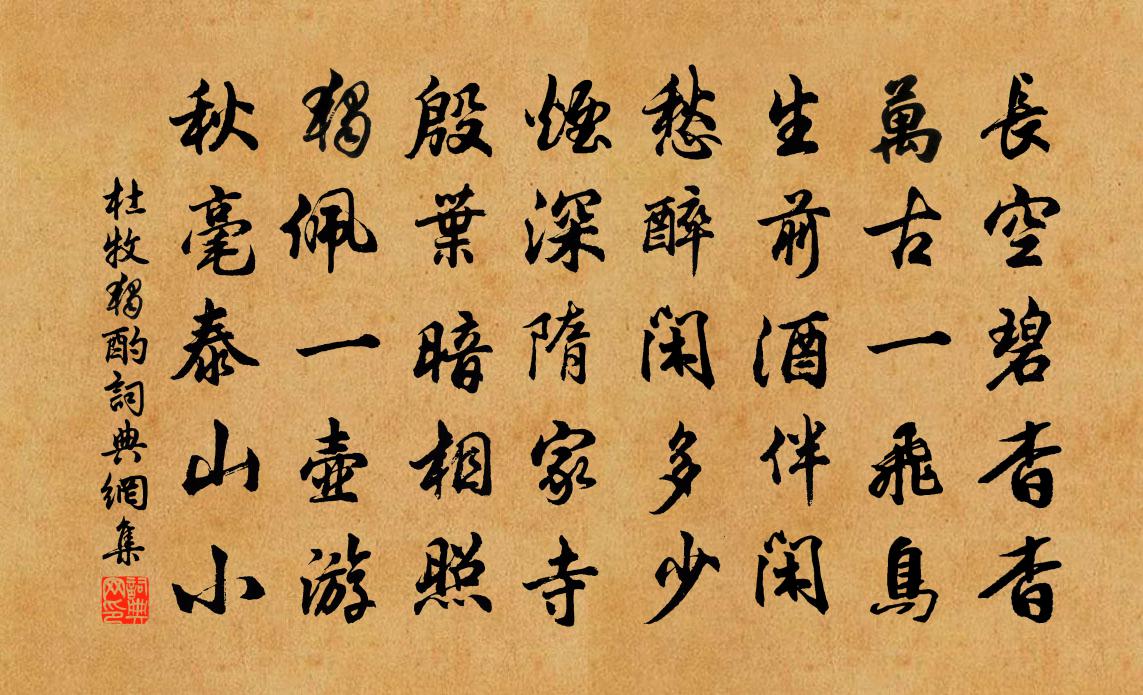 長空碧杳杳
萬古一飛鳥
生前酒伴閑
愁醉閑多少
煙深隋家寺
殷葉暗相照
獨佩一壺游
秋毫泰山小
杜牧獨酌詞典網集
詞典网印